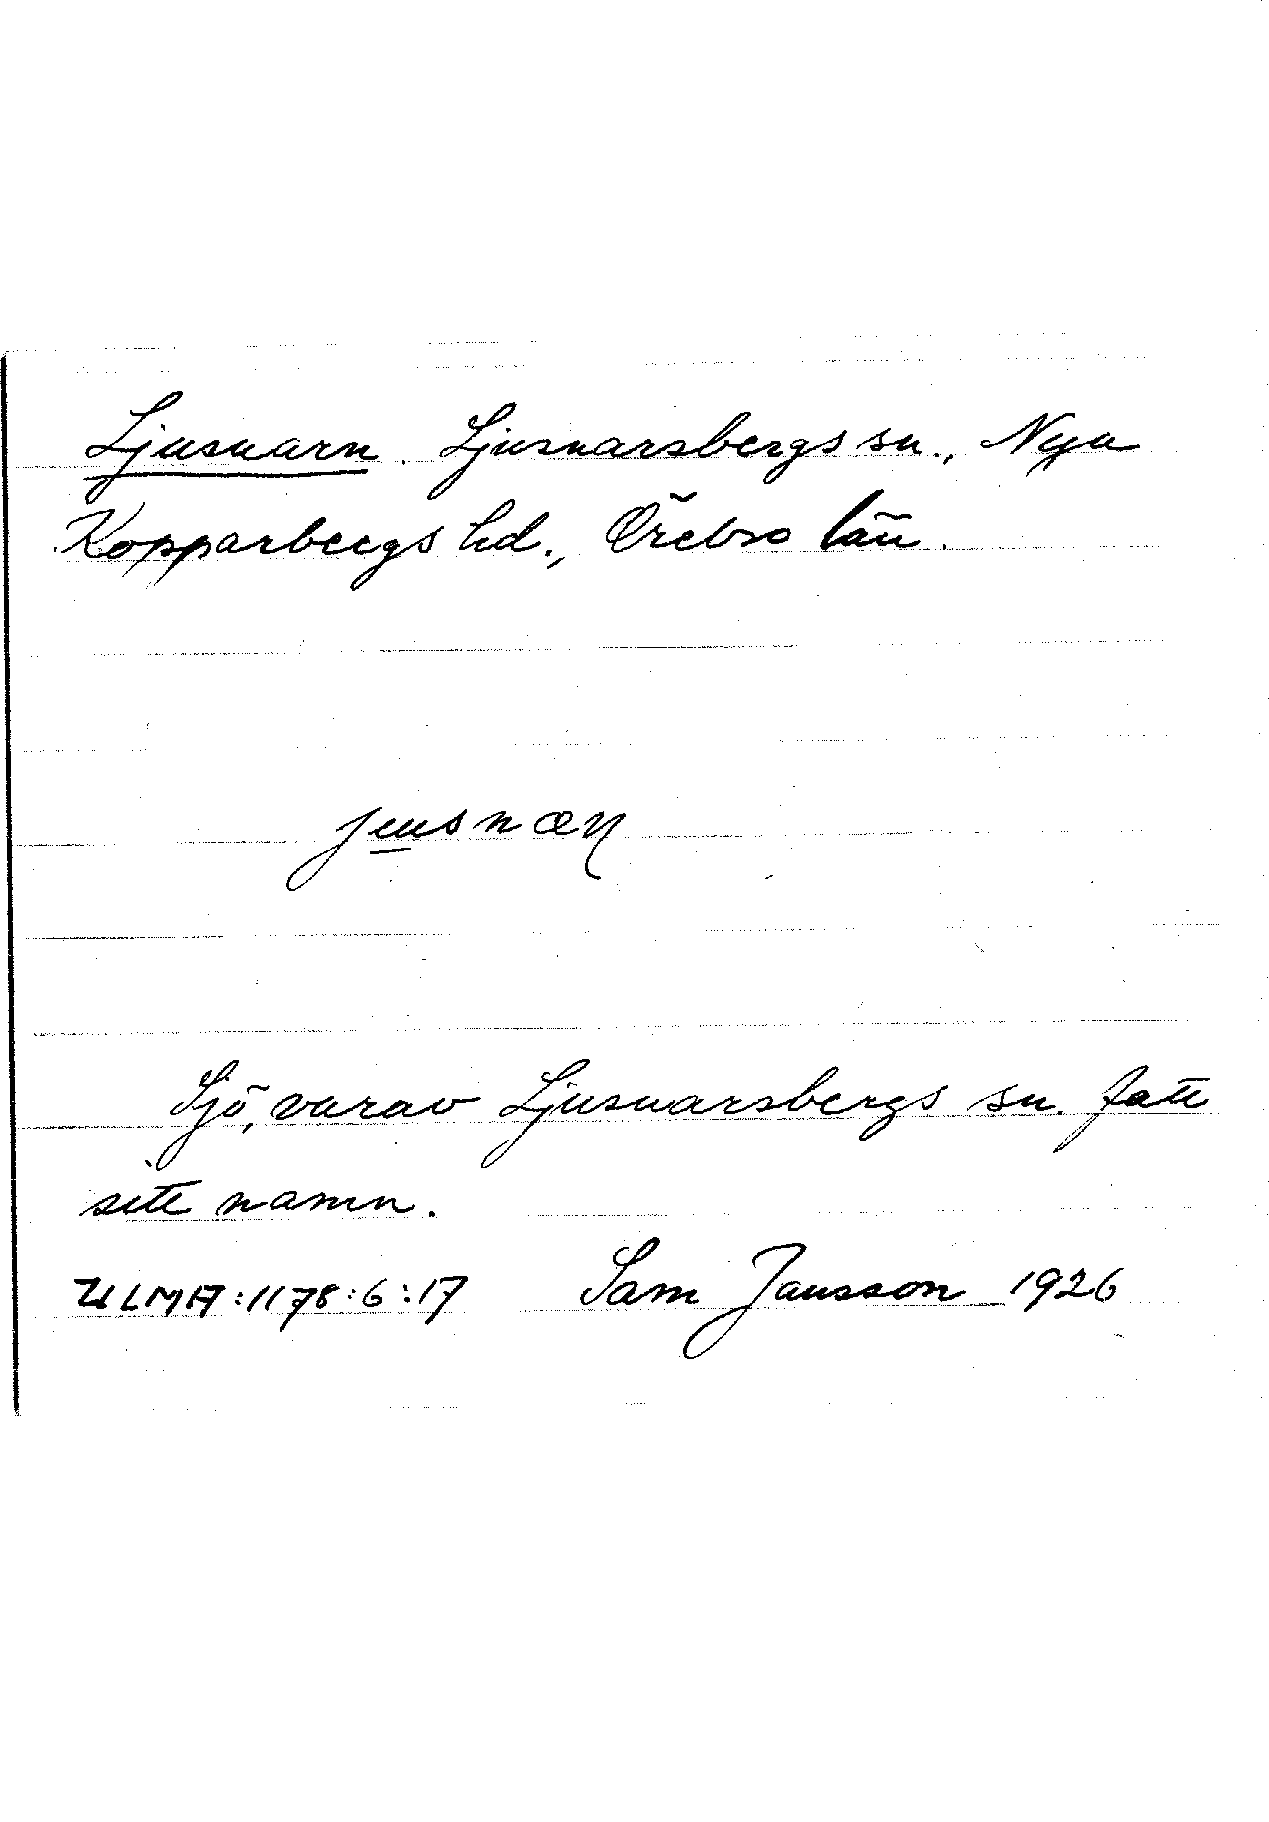 Ljusnarn. Ljusnarsbergs sn., Nya
Kopparbergs hd., Örebro län.
Sjö, varav Ljusnarsbergs sn. fått
sitt namn.
ULMA:1178:6:17 Sam Jansson 1926